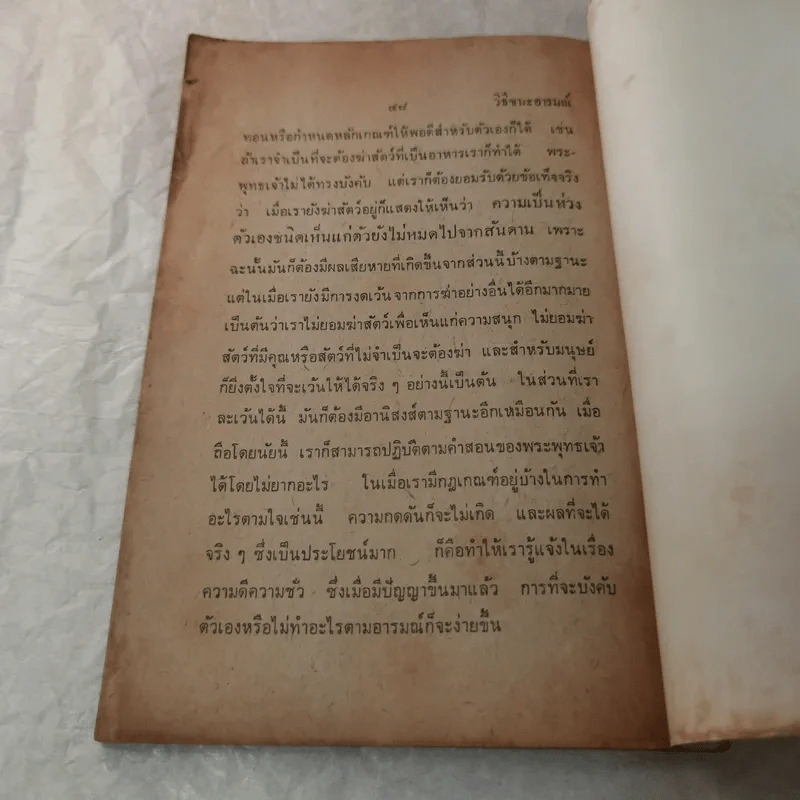 ๔๗ วิธีชนะอารมณ์
ทอนหรือกำหนดหลักเกณฑ์ให้พอดีสำหรับตัวเองก็ได้ เช่น
ถ้าเราจำเป็นที่จะต้องฆ่าสัตว์ที่เป็นอาหารเราก็ทำได้ พระ-
พุทธเจ้าไม่ได้ทรงบังคับ แต่เราก็ต้องยอมรับด้วยข้อเท็จจริง
ว่า เมื่อเรายังฆ่าสัตว์อยู่ก็แสดงให้เห็นว่า ความเป็นห่วง
ตัวเองชนิดเห็นแก่ตัวยังไม่หมดไปจากสันดาน เพราะ
ฉะนั้นมันก็ต้องมีผลเสียหายที่เกิดขึ้นจากส่วนนี้บ้างตามฐานะ
แต่ในเมื่อเรายังมีการงดเว้นจากการฆ่าอย่างอื่นได้อีกมากมาย
เป็นต้นว่าเราไม่ยอมฆ่าสัตว์เพื่อเห็นแก่ความสนุก ไม่ยอมฆ่า
สัตว์ที่มีคุณหรือสัตว์ที่ไม่จำเป็นจะต้องฆ่า และสำหรับมนุษย์
ก็ยิ่งตั้งใจที่จะเว้นให้ได้จริง ๆ อย่างนี้เป็นต้น ในส่วนที่เรา
ละเว้นได้นี้ มันก็ต้องมีอานิสงส์ตามฐานะอีกเหมือนกัน เมื่อ
ถือโดยนัยนี้ เราก็สามารถปฏิบัติตามคำสอนของพระพุทธเจ้า
ได้โดยไม่ยากอะไร ในเมื่อเรามีกฎเกณฑ์อยู่บ้างในการทำ
อะไรตามใจเช่นนี้ ความกดดันก็จะไม่เกิด และผลที่จะได้
จริง ๆ ซึ่งเป็นประโยชน์มาก ก็คือทำให้เรารู้แจ้งในเรื่อง
ความดีความชั่ว ซึ่งเมื่อมีปัญญาขึ้นมาแล้ว การที่จะบังคับ
ตัวเองหรือไม่ทำอะไรตามอารมณ์ก็จะง่ายขึ้น